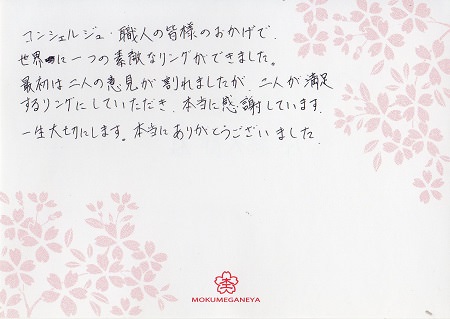 コンシェルジュ・職人の皆様のおかげで、
世界に一つの素敵なリングができました。
最初は二人の意見が割れましたが、二人が満足
するリングにしていただき、本当に感謝しています。
一生大切にします。本当にありがとうございました。
MOKUMEGANEYA